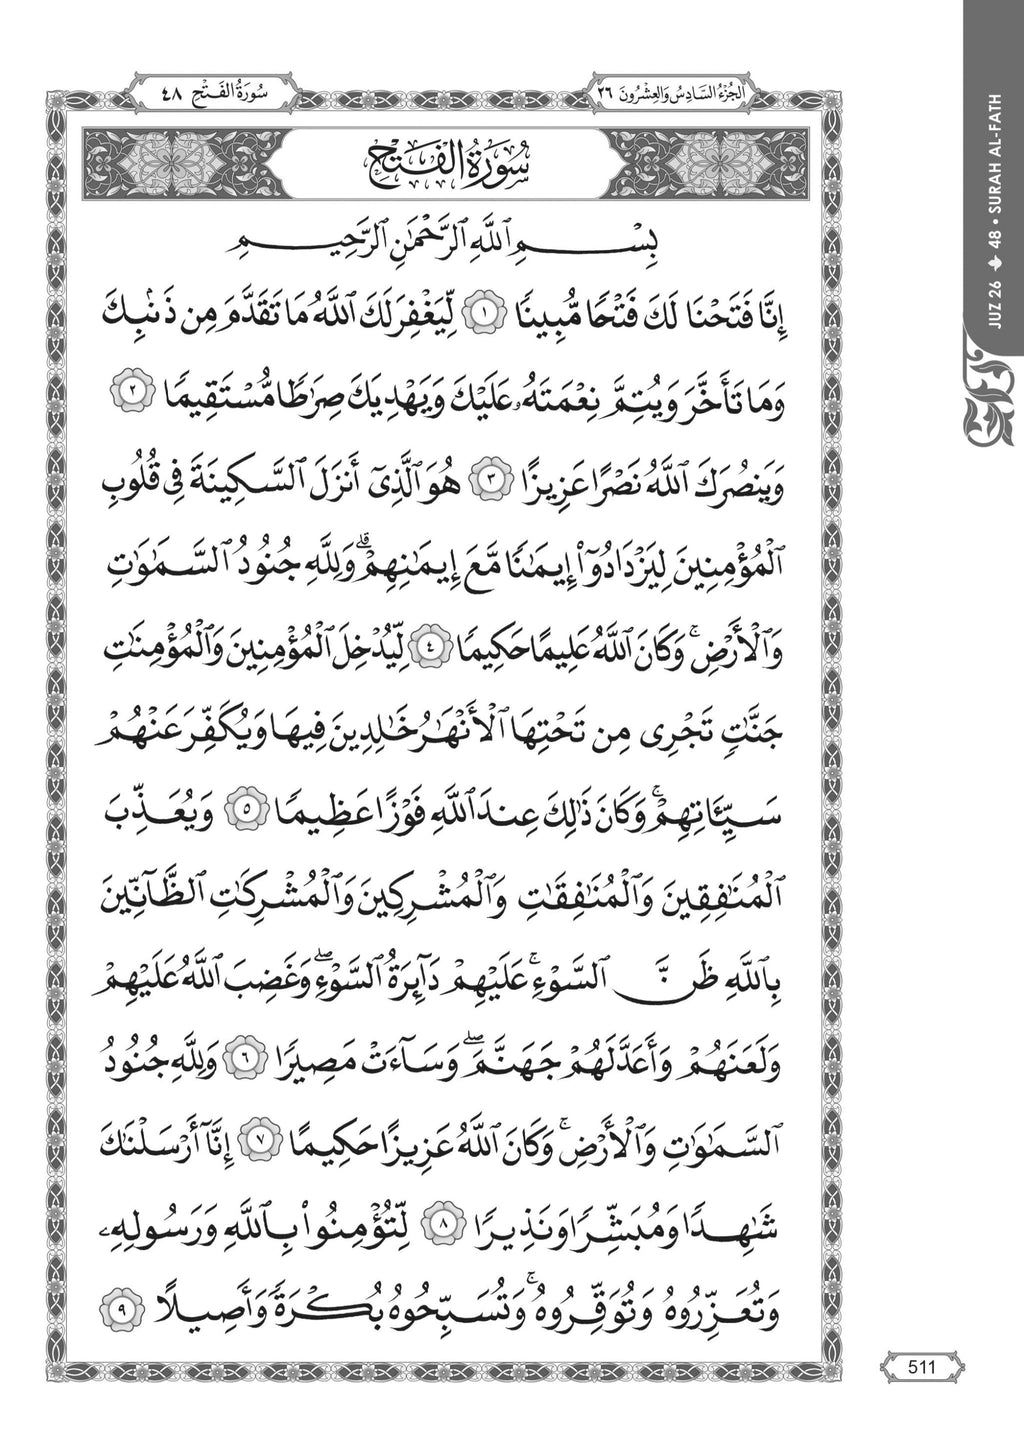 سُورَةُ الفَتْحِ ٤٨
الجُزْءُ السَّادِسُ وَالعِشْرُونَ ٢٦
JUZ 26 48 • SURAH AL-FATH
سُورَةُ الفَتْحِ
بِسْمِ ٱللَّهِ ٱلرَّحْمَٰنِ ٱلرَّحِيمِ
إِنَّا فَتَحْنَا لَكَ فَتْحًا مُّبِينًا ١ لِّيَغْفِرَ لَكَ ٱللَّهُ مَا تَقَدَّمَ مِن ذَنۢبِكَ
وَمَا تَأَخَّرَ وَيُتِمَّ نِعْمَتَهُۥ عَلَيْكَ وَيَهْدِيَكَ صِرَٰطًا مُّسْتَقِيمًا ٢
وَيَنصُرَكَ ٱللَّهُ نَصْرًا عَزِيزًا ٣ هُوَ ٱلَّذِىٓ أَنزَلَ ٱلسَّكِينَةَ فِى قُلُوبِ
ٱلْمُؤْمِنِينَ لِيَزْدَادُوٓا۟ إِيمَٰنًا مَّعَ إِيمَٰنِهِمْ ۗ وَلِلَّهِ جُنُودُ ٱلسَّمَٰوَٰتِ
وَٱلْأَرْضِ ۚ وَكَانَ ٱللَّهُ عَلِيمًا حَكِيمًا ٤ لِّيُدْخِلَ ٱلْمُؤْمِنِينَ وَٱلْمُؤْمِنَٰتِ
جَنَّٰتٍ تَجْرِى مِن تَحْتِهَا ٱلْأَنْهَٰرُ خَٰلِدِينَ فِيهَا وَيُكَفِّرَ عَنْهُمْ
سَيِّـَٔاتِهِمْ ۚ وَكَانَ ذَٰلِكَ عِندَ ٱللَّهِ فَوْزًا عَظِيمًا ٥ وَيُعَذِّبَ
ٱلْمُنَٰفِقِينَ وَٱلْمُنَٰفِقَٰتِ وَٱلْمُشْرِكِينَ وَٱلْمُشْرِكَٰتِ ٱلظَّآنِّينَ
بِٱللَّهِ ظَنَّ ٱلسَّوْءِ ۚ عَلَيْهِمْ دَآئِرَةُ ٱلسَّوْءِ ۖ وَغَضِبَ ٱللَّهُ عَلَيْهِمْ
وَلَعَنَهُمْ وَأَعَدَّ لَهُمْ جَهَنَّمَ ۖ وَسَآءَتْ مَصِيرًا ٦ وَلِلَّهِ جُنُودُ
ٱلسَّمَٰوَٰتِ وَٱلْأَرْضِ ۚ وَكَانَ ٱللَّهُ عَزِيزًا حَكِيمًا ٧ إِنَّآ أَرْسَلْنَٰكَ
شَٰهِدًا وَمُبَشِّرًا وَنَذِيرًا ٨ لِّتُؤْمِنُوا۟ بِٱللَّهِ وَرَسُولِهِۦ
وَتُعَزِّرُوهُ وَتُوَقِّرُوهُ ۚ وَتُسَبِّحُوهُ بُكْرَةً وَأَصِيلًا ٩
511